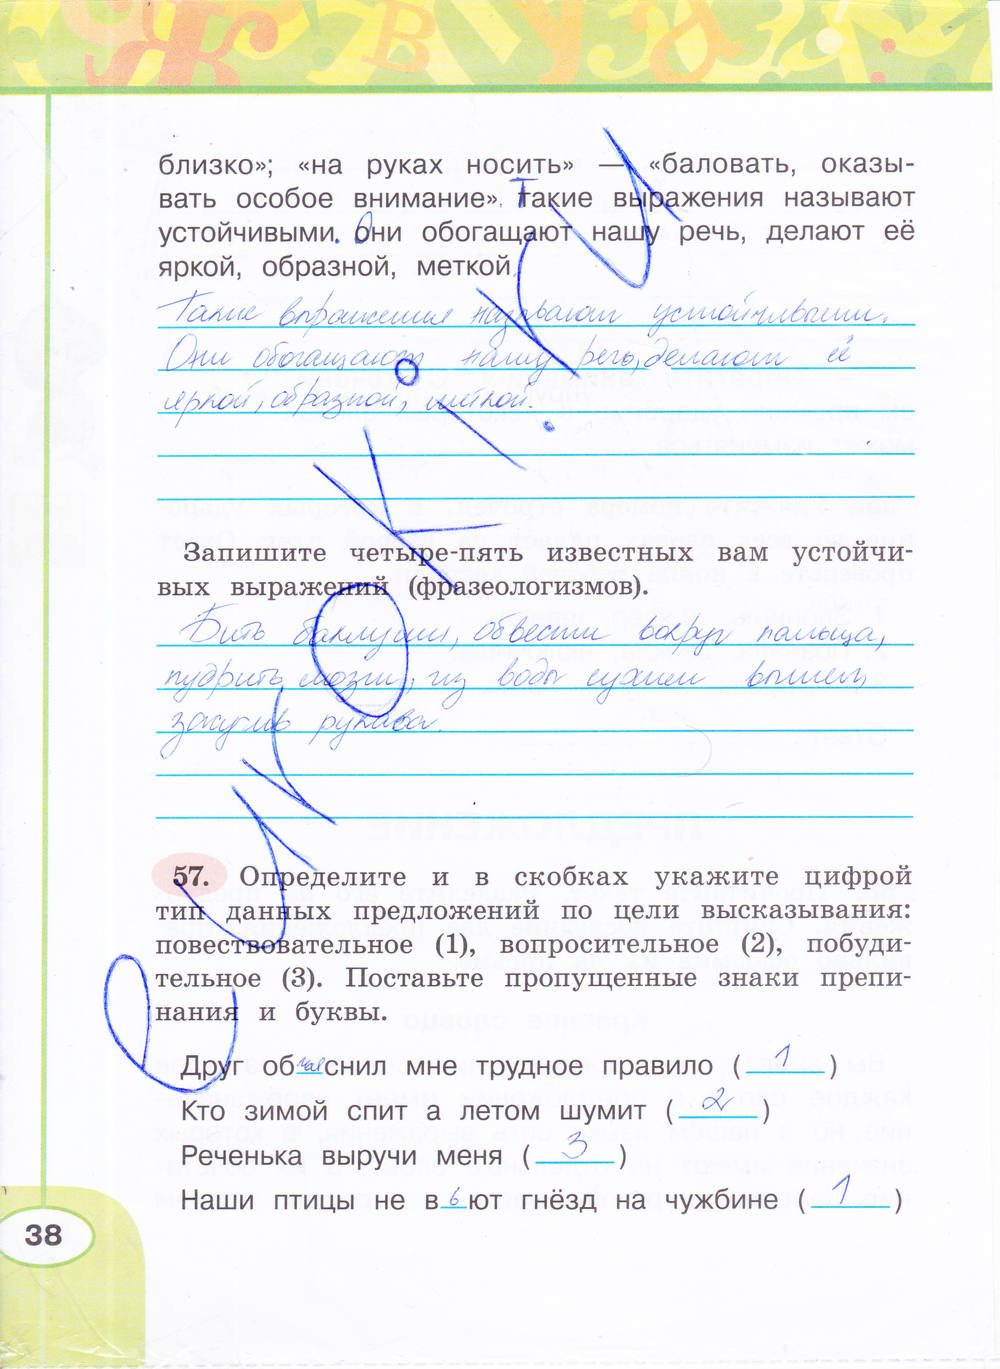 близко»; «на руках носить» — «баловать, оказы-
вать особое внимание». Такие выражения называют
устойчивыми. Они обогащают нашу речь, делают её
яркой, образной, меткой.
Такие выражения называют устойчивыми.
Они обогащают нашу речь, делают её
яркой, образной, меткой.
Запишите четыре-пять известных вам устойчи-
вых выражений (фразеологизмов).
Бить баклуши, обвести вокруг пальца,
пудрить мозги, из воды сухим вышел,
засучив рукава.
57. Определите и в скобках укажите цифрой
тип данных предложений по цели высказывания:
повествовательное (1), вопросительное (2), побуди-
тельное (3). Поставьте пропущенные знаки препи-
нания и буквы.
Друг объяснил мне трудное правило ( 1 )
Кто зимой спит а летом шумит ( 2 )
Реченька выручи меня ( 3 )
Наши птицы не вьют гнёзд на чужбине ( 1 )
38